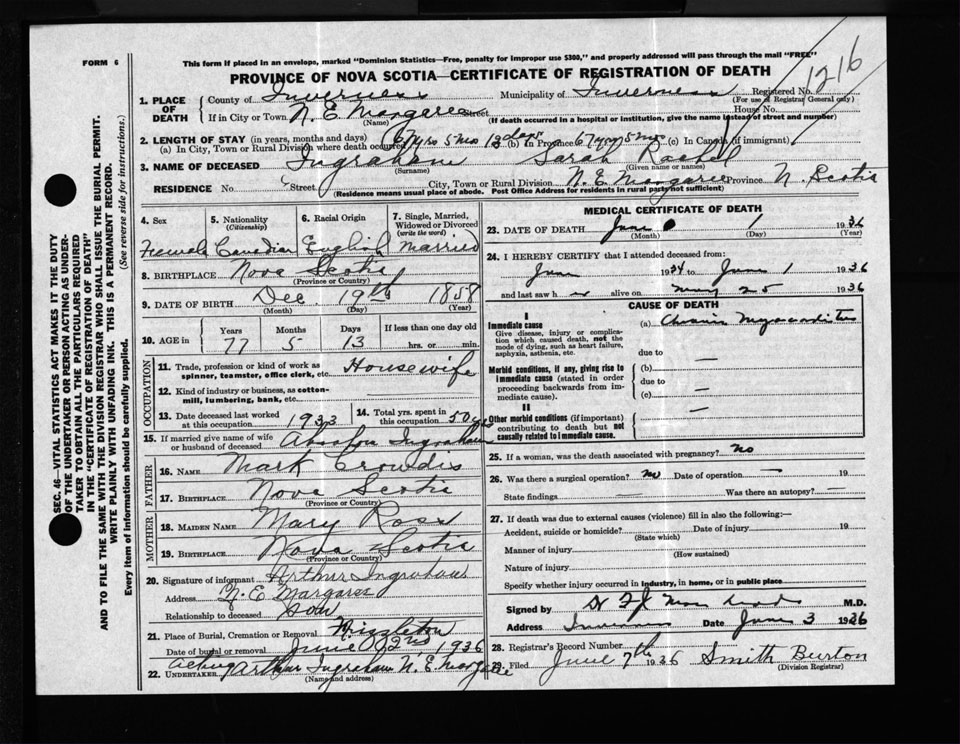 FORM 6
This form if placed in an envelope, marked "Dominion Statistics—Free, penalty for improper use $300," and properly addressed will pass through the mail "FREE"
PROVINCE OF NOVA SCOTIA—CERTIFICATE OF REGISTRATION OF DEATH
1216
1. PLACE OF DEATH
County of Inverness Municipality of Inverness Registered No.
(For use of Registrar General only)
If in City or Town N. E. Margaree Street House No.
(Name) (If death occurred in a hospital or institution, give the name instead of street and number)
2. LENGTH OF STAY (in years, months and days)
(a) In City, Town or Rural Division where death occurred 67 yrs 5 mos 13 days (b) In Province 67 yrs 5 mos (c) In Canada (if immigrant)
3. NAME OF DECEASED Ingraham Sarah Rachel
(Surname) (Given name or names)
RESIDENCE No. Street City, Town or Rural Division N. E. Margaree Province N. Scotia
(Residence means usual place of abode. Post Office Address for residents in rural parts not sufficient)
4. Sex 5. Nationality (Citizenship) 6. Racial Origin 7. Single, Married, Widowed or Divorced (write the word)
Female Canadian English Married
8. BIRTHPLACE Nova Scotia
(Province or Country)
9. DATE OF BIRTH Dec. 19th 1858
(Month) (Day) (Year)
10. AGE in Years Months Days If less than one day old
77 5 13 hrs. or min.
OCCUPATION
11. Trade, profession or kind of work as spinner, teamster, office clerk, etc. Housewife
12. Kind of industry or business, as cotton-mill, lumbering, bank, etc.
13. Date deceased last worked at this occupation 1933 14. Total yrs. spent in this occupation 50 yrs
15. If married give name of wife or husband of deceased Absalom Ingraham
FATHER
16. NAME Mark Crowdis
17. BIRTHPLACE Nova Scotia
(Province or Country)
MOTHER
18. MAIDEN NAME Mary Ross
19. BIRTHPLACE Nova Scotia
(Province or Country)
20. Signature of informant Arthur Ingraham
Address N. E Margaree
Relationship to deceased Son
21. Place of Burial, Cremation or Removal
Date of burial or removal June 2nd 1936
22. UNDERTAKER Acting Arthur Ingraham N. E. Margaree
(Name and address)
MEDICAL CERTIFICATE OF DEATH
23. DATE OF DEATH June 1 1936
(Month) (Day) (Year)
24. I HEREBY CERTIFY that I attended deceased from:
June 1934 to June 1 1936
and last saw her alive on May 25 1936
CAUSE OF DEATH
I
Immediate cause (a) Chronic Myocarditis
Give disease, injury or complication which caused death, not the mode of dying, such as heart failure, asphyxia, asthenia, etc.
due to —
Morbid conditions, if any, giving rise to immediate cause (stated in order proceeding backwards from immediate cause).
(b)
due to —
(c)
II
Other morbid conditions (if important) contributing to death but not causally related to immediate cause. —
25. If a woman, was the death associated with pregnancy? No
26. Was there a surgical operation? No Date of operation — 19
State findings — Was there an autopsy?
27. If death was due to external causes (violence) fill in also the following:—
Accident, suicide or homicide? Date of injury 19
(State which)
Manner of injury
(How sustained)
Nature of injury
Specify whether injury occurred in industry, in home, or in public place
Signed by M.D.
Address Inverness Date June 3 1936
28. Registrar's Record Number
29. Filed June 7th 1936 Smith Burton
(Division Registrar)
SEC. 46—VITAL STATISTICS ACT MAKES IT THE DUTY
OF THE UNDERTAKER OR PERSON ACTING AS UNDER-
TAKER TO OBTAIN ALL THE PARTICULARS REQUIRED
IN THE "CERTIFICATE OF REGISTRATION OF DEATH"
AND TO FILE THE SAME WITH THE DIVISION REGISTRAR WHO SHALL ISSUE THE BURIAL PERMIT.
WRITE PLAINLY WITH UNFADING INK. THIS IS A PERMANENT RECORD.
Every item of information should be carefully supplied. (See reverse side for instructions.)